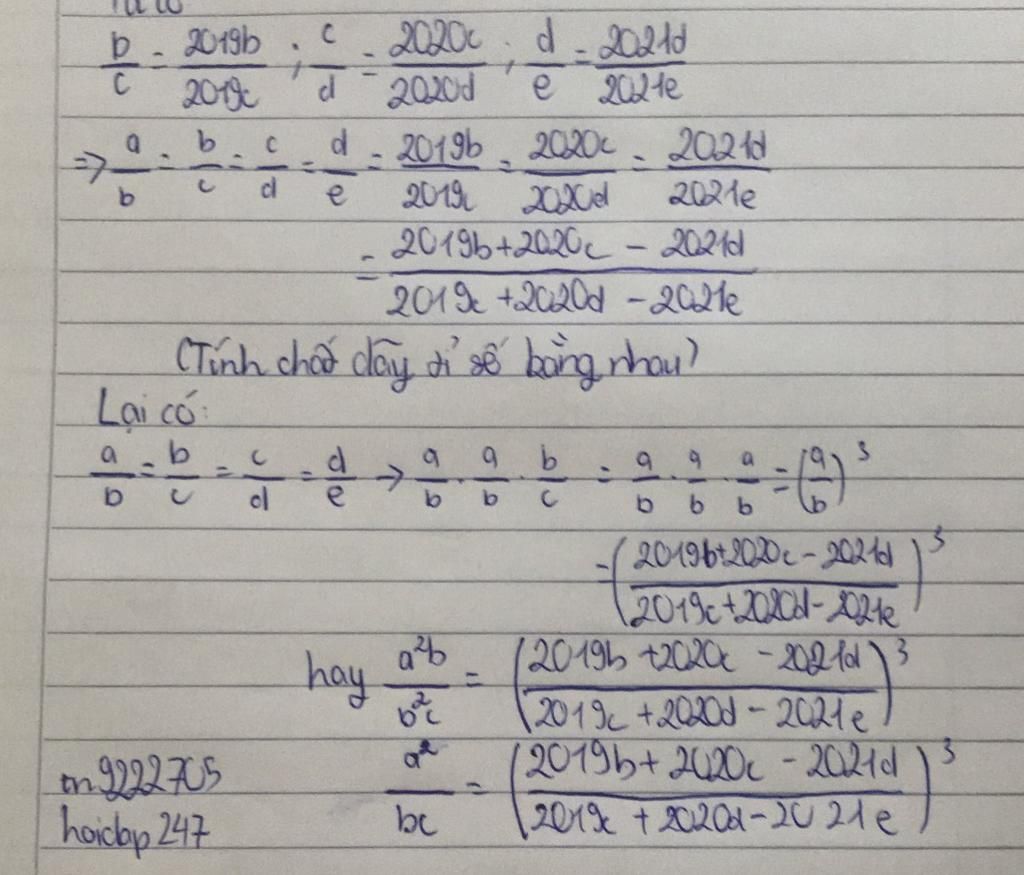 b/c = 2019b/2019c ; c/d = 2020c/2020d ; d/e = 2021d/2021e
=> a/b = b/c = c/d = d/e = 2019b/2019c = 2020c/2020d = 2021d/2021e
= (2019b+2020c - 2021d)/(2019c +2020d - 2021e)
(Tính chất dãy tỉ số bằng nhau)
Lại có:
a/b = b/c = c/d = d/e → a/b . a/b . b/c = a/b . a/b . a/b = (a/b)³
= ((2019b+2020c - 2021d)/(2019c+2020d - 2021e))³
hay a²b/b²c = ((2019b +2020c - 2021d)/(2019c + 2020d - 2021e))³
a²/bc = ((2019b + 2020c - 2021d)/(2019c + 2020d - 2021e))³
m9222705
hoidap247